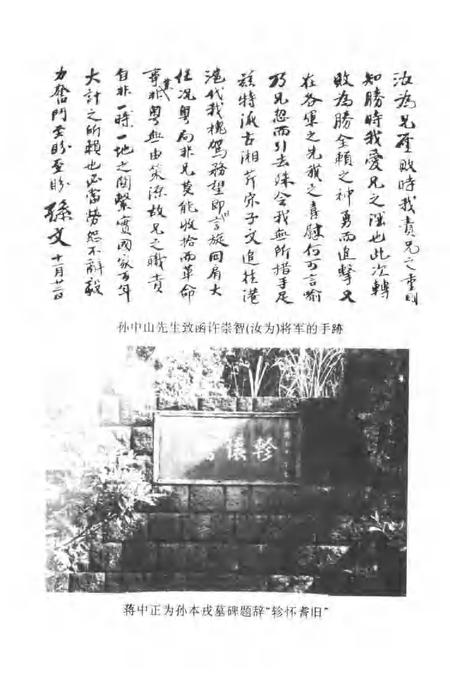 汝為兄鑒敗時我責兄之重則
知勝時我愛兄之深也此次轉
敗為勝全賴之神勇而追擊又
在各軍之先我之喜慰何可言喻
乃兄忽而引去殊令我無所措手足
茲特派古湘芹宋子文追往港
滬代我挽駕務望即言旋同肩大
任況粵局非兄莫能收拾而革命
其事非粵無由策源故兄之職責
自非一時一地之關繫實國家百年
大計之所賴也必當勞怨不辭毅
力奮鬥至盼至盼 孫文 十一月廿二日
孙中山先生致函许崇智(汝为)将军的手跡
軫懷
蒋中正为孙本戎墓碑题辞“轸怀耆旧”